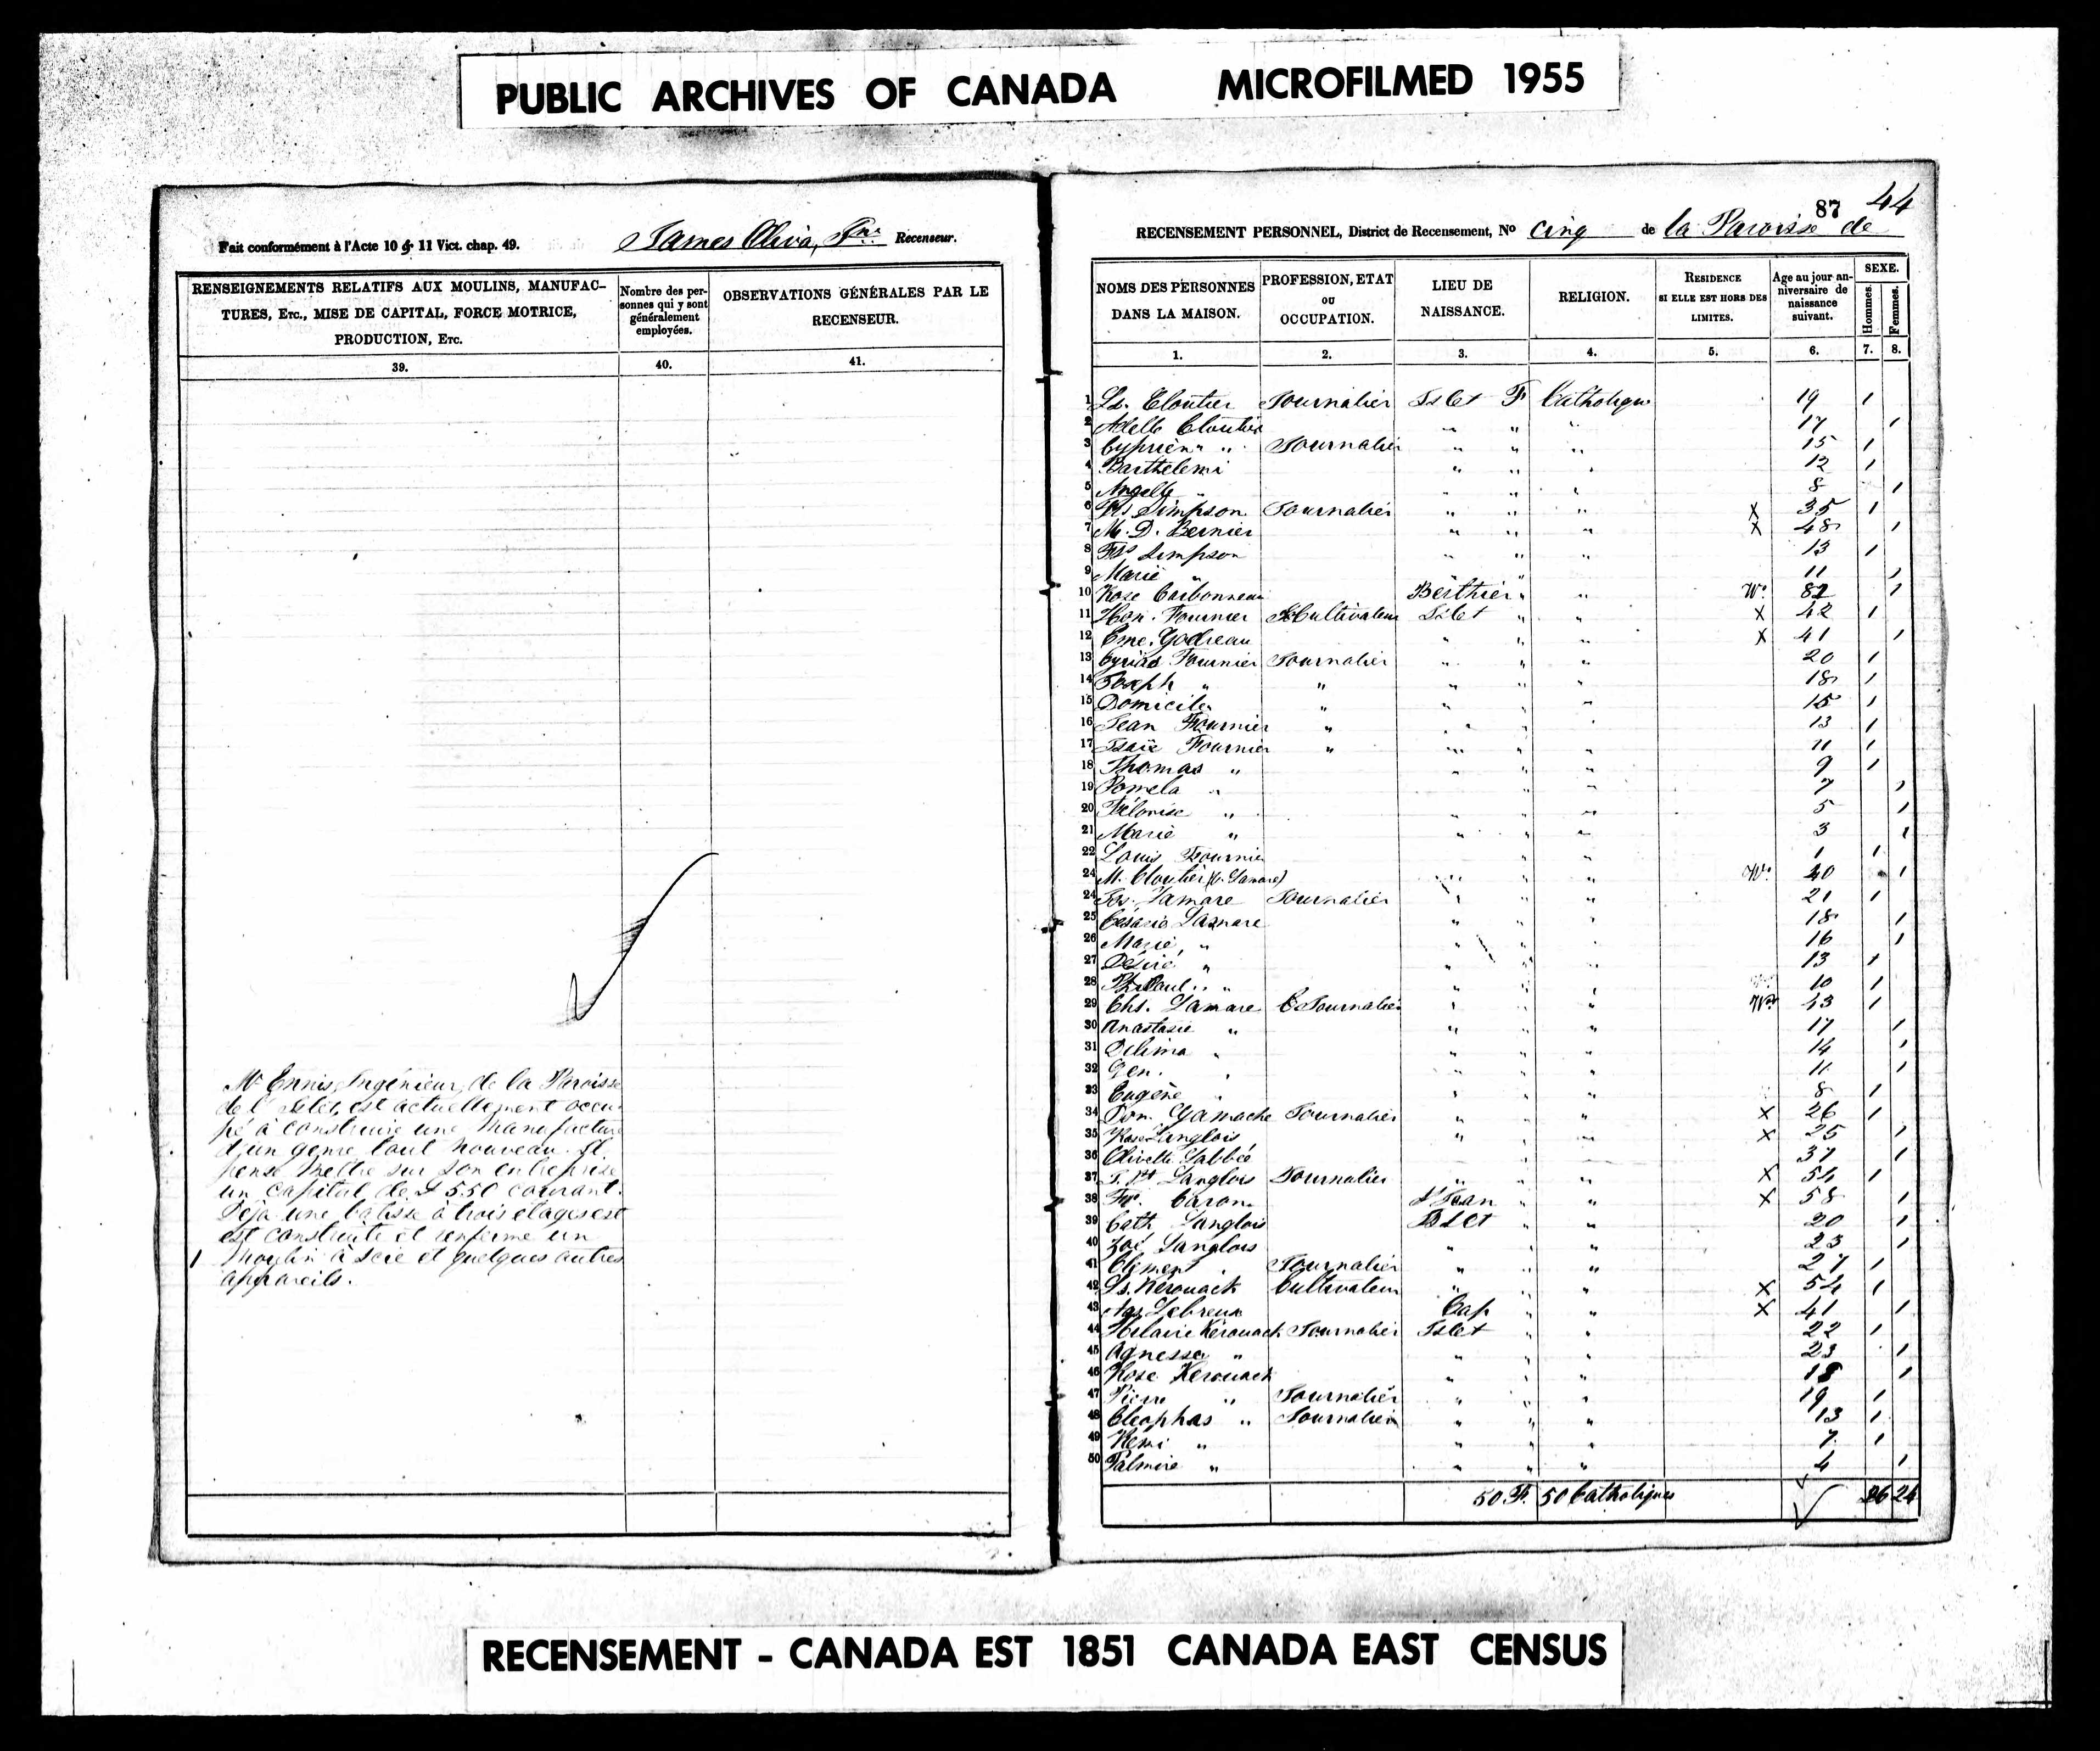 PUBLIC ARCHIVES OF CANADA MICROFILMED 1955
Fait conformément à l'Acte 10 & 11 Vict. chap. 49. James Oliva, Recenseur.
RENSEIGNEMENTS RELATIFS AUX MOULINS, MANUFACTURES, ETC., MISE DE CAPITAL, FORCE MOTRICE, PRODUCTION, ETC.
Nombre des personnes qui y sont généralement employées.
OBSERVATIONS GÉNÉRALES PAR LE RECENSEUR.
39. 40. 41.
Mr Ennis, Ingénieur, de la Paroisse
de l'Islet, est actuellement occu-
pé à construire une manufacture
d'un genre tout nouveau. Il
pense mettre sur son entreprise
un capital de £550 courant.
Déjà une batisse à trois etages est
est construite et renferme un
1 moulin à scie et quelques autres
appareils.
87 44
RECENSEMENT PERSONNEL, District de Recensement, No cinq de la Paroisse de
NOMS DES PERSONNES DANS LA MAISON.
PROFESSION, ETAT OU OCCUPATION.
LIEU DE NAISSANCE.
RELIGION.
RESIDENCE SI ELLE EST HORS DES LIMITES.
Age au jour anniversaire de naissance suivant.
SEXE.
Hommes. Femmes.
1. 2. 3. 4. 5. 6. 7. 8.
1 Ls. Cloutier Journalier Islet F Catholique 19 1
2 Adelle Cloutier " " " 17 1
3 Cyprien " Journalier " " " 15 1
4 Barthelemi " " " 12 1
5 Angelle " " " " 8 1
6 Simpson Journalier " " " X 35 1
7 M. D. Bernier " " " X 48 1
8 Frs Simpson " " " 13 1
9 Marie " " 11 1
10 Rose Carbonneau Berthier " " Wr 82 1
11 Hen. Fournier Cultivateur Islet " " X 42 1
12 Eme. Godreau " " " X 41 1
13 Fournier Journalier " " " 20 1
14 Joseph " " " " " 18 1
15 Domicile " " " " 15 1
16 Jean Fournier " " " " 13 1
17 Isaïe Fournier " " " " 11 1
18 Thomas " " " " 9 1
19 Pomela " " " 7 1
20 " " " " 5 1
21 Marie " " " " 3 1
22 Louis Fournier " " 1 1
24 M. Cloutier (V. Lamare) " " " Wr. 40 1
24 Jos. Lamare Journalier " " " 21 1
25 Césarie Lamare " " " 18 1
26 Marie, " " " " 16 1
27 Désiré " " " " 13 1
28 Paul " " " " 10 1
29 Chs. Lamare Journalier " " " Wr 43 1
30 Anastasie " " " " 17 1
31 Delima " " " " 14 1
32 Gen. " " " " 11 1
33 Eugène " " " " 8 1
34 Dom. Gamache Journalier " " " X 26 1
35 Rose Langlois " " X 25 1
36 Olivette Labbée " " 37 1
37 J. Bt Langlois Journalier " " " X 54 1
38 Caron St Jean " " X 58 1
39 Cath. Langlois Islet " " 20 1
40 Zoé Langlois " " " 23 1
41 Clément " Journalier " " " 27 1
42 Ls. Kerouack Cultivateur " " " X 54 1
43 Lebreux Cap " " X 41 1
44 Hilaire Kerouack Journalier Islet " " 22 1
45 Agnesse " " " " 23 1
46 Rose Kerouack " " " 18 1
47 Pierre " Journalier " " " 19 1
48 Cleophas " Journalier " " " 13 1
49 Remi " " " " 7 1
50 Palmire " " " " 4 1
50 F. 50 Catholiques 26 24
RECENSEMENT - CANADA EST 1851 CANADA EAST CENSUS